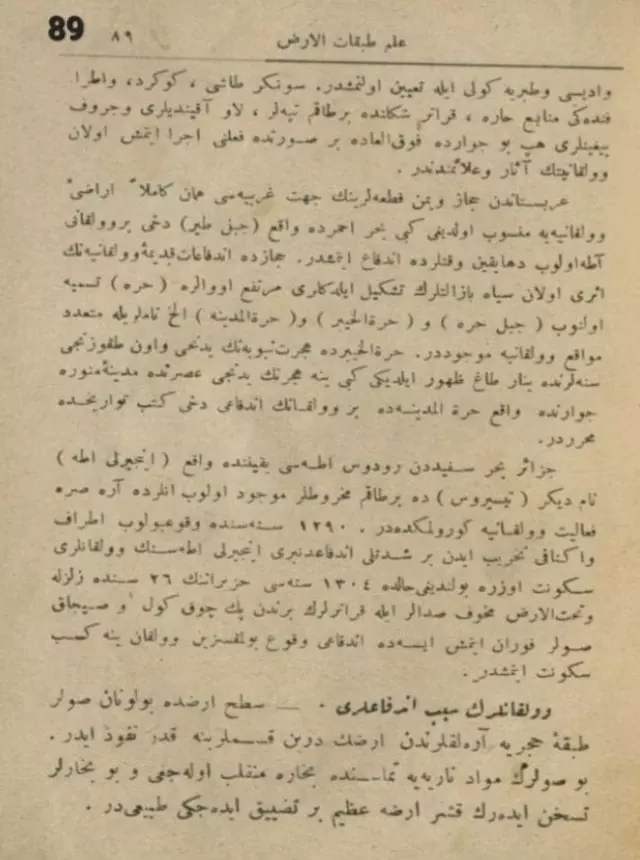 89 ٨٩ علم طبقات الارض
واديسى وطبريه كولى ايله تعيين اولنمشدر. سونكر طاشى ، كوكرد، واطرا
فنده‌كى منابع حاره ، قراتر شكلنده برطاقم تپه‌لر ، لاو آقينديلرى وجروف
ييغينلرى هپ بو جوارده فوق‌العاده بر صورتده فعلنى اجرا ايتمش اولان
وولقانيتك آثار وعلائمندندر .
عربستاندن حجاز ويمن قطعه‌لرينك جهت غربيه‌سى همان كاملاً اراضئ
وولقانيه‌يه منسوب اولديغى كبى بحر احمرده واقع (جبل طير) دخى بروولقانى
آطه‌اولوب دهايقين وقتلرده اندفاع ايتمشدر. حجازده اندفاعات‌قديمهٔ‌وولقانيه‌نك
اثرى اولان سياه بازالتلرك تشكيل ايلدكلرى مرتفع اووالره (حره) تسميه
اولنوب ( جبل حره ) و ( حرة‌الخيبر ) و( حرة‌المدينه ) الخ ناملريله متعدد
مواقع وولقانيه موجوددر. حرة‌الخيبرده هجرت‌نبويه‌نك يدنجى واون طقوزنجى
سنه‌لرنده ينار طاغ ظهور ايلديكى كبى ينه هجرتك يدنجى عصرنده مدينهٔ‌منوره
جوارنده واقع حرة المدينه‌ده بر وولقانك اندفاعى دخى كتب تواريخده
محرردر.
جزائر بحر سفيددن رودوس اطه‌سى يقيننده واقع ( اينجيرلى اطه )
نام ديكر ( نيسيروس ) ده برطاقم مخروطلر موجود اولوب انلرده آره صره
فعاليت وولقانيه كورولمكده‌در . ١٢٩٠ سنه‌سنده وقوعبولوب اطراف
واكنافى تخريب ايدن بر شدتلى اندفاعدنبرى اينجيرلى اطه‌سنك وولقانلرى
سكونت اوزره بولنديغى‌حالده ١٣٠٤ سنه‌سى حزيراننك ٢٦ سنده زلزله
وتحت‌الارض مخوف صدالر ايله قراترلرك برندن پك چوق كول و صيجاق
صولر فوران ايتمش ايسه‌ده اندفاعى وقوع بولقسزين وولقان ينه كسب
سكونت ايتمشدر.
وولقانلرك سبب اندفاعلرى . — سطح ارضده بولونان صولر
طبقهٔ حجريه آره‌لقلرندن ارضك درين قسملرينه قدر نفوذ ايدر.
بو صولرك مواد ناريه‌يه تماسنده بخاره منقلب اوله‌جغى و بو بخارلر
تسخن ايده‌رك قشر ارضه عظيم بر تضييق ايده‌جكى طبيعى‌در .